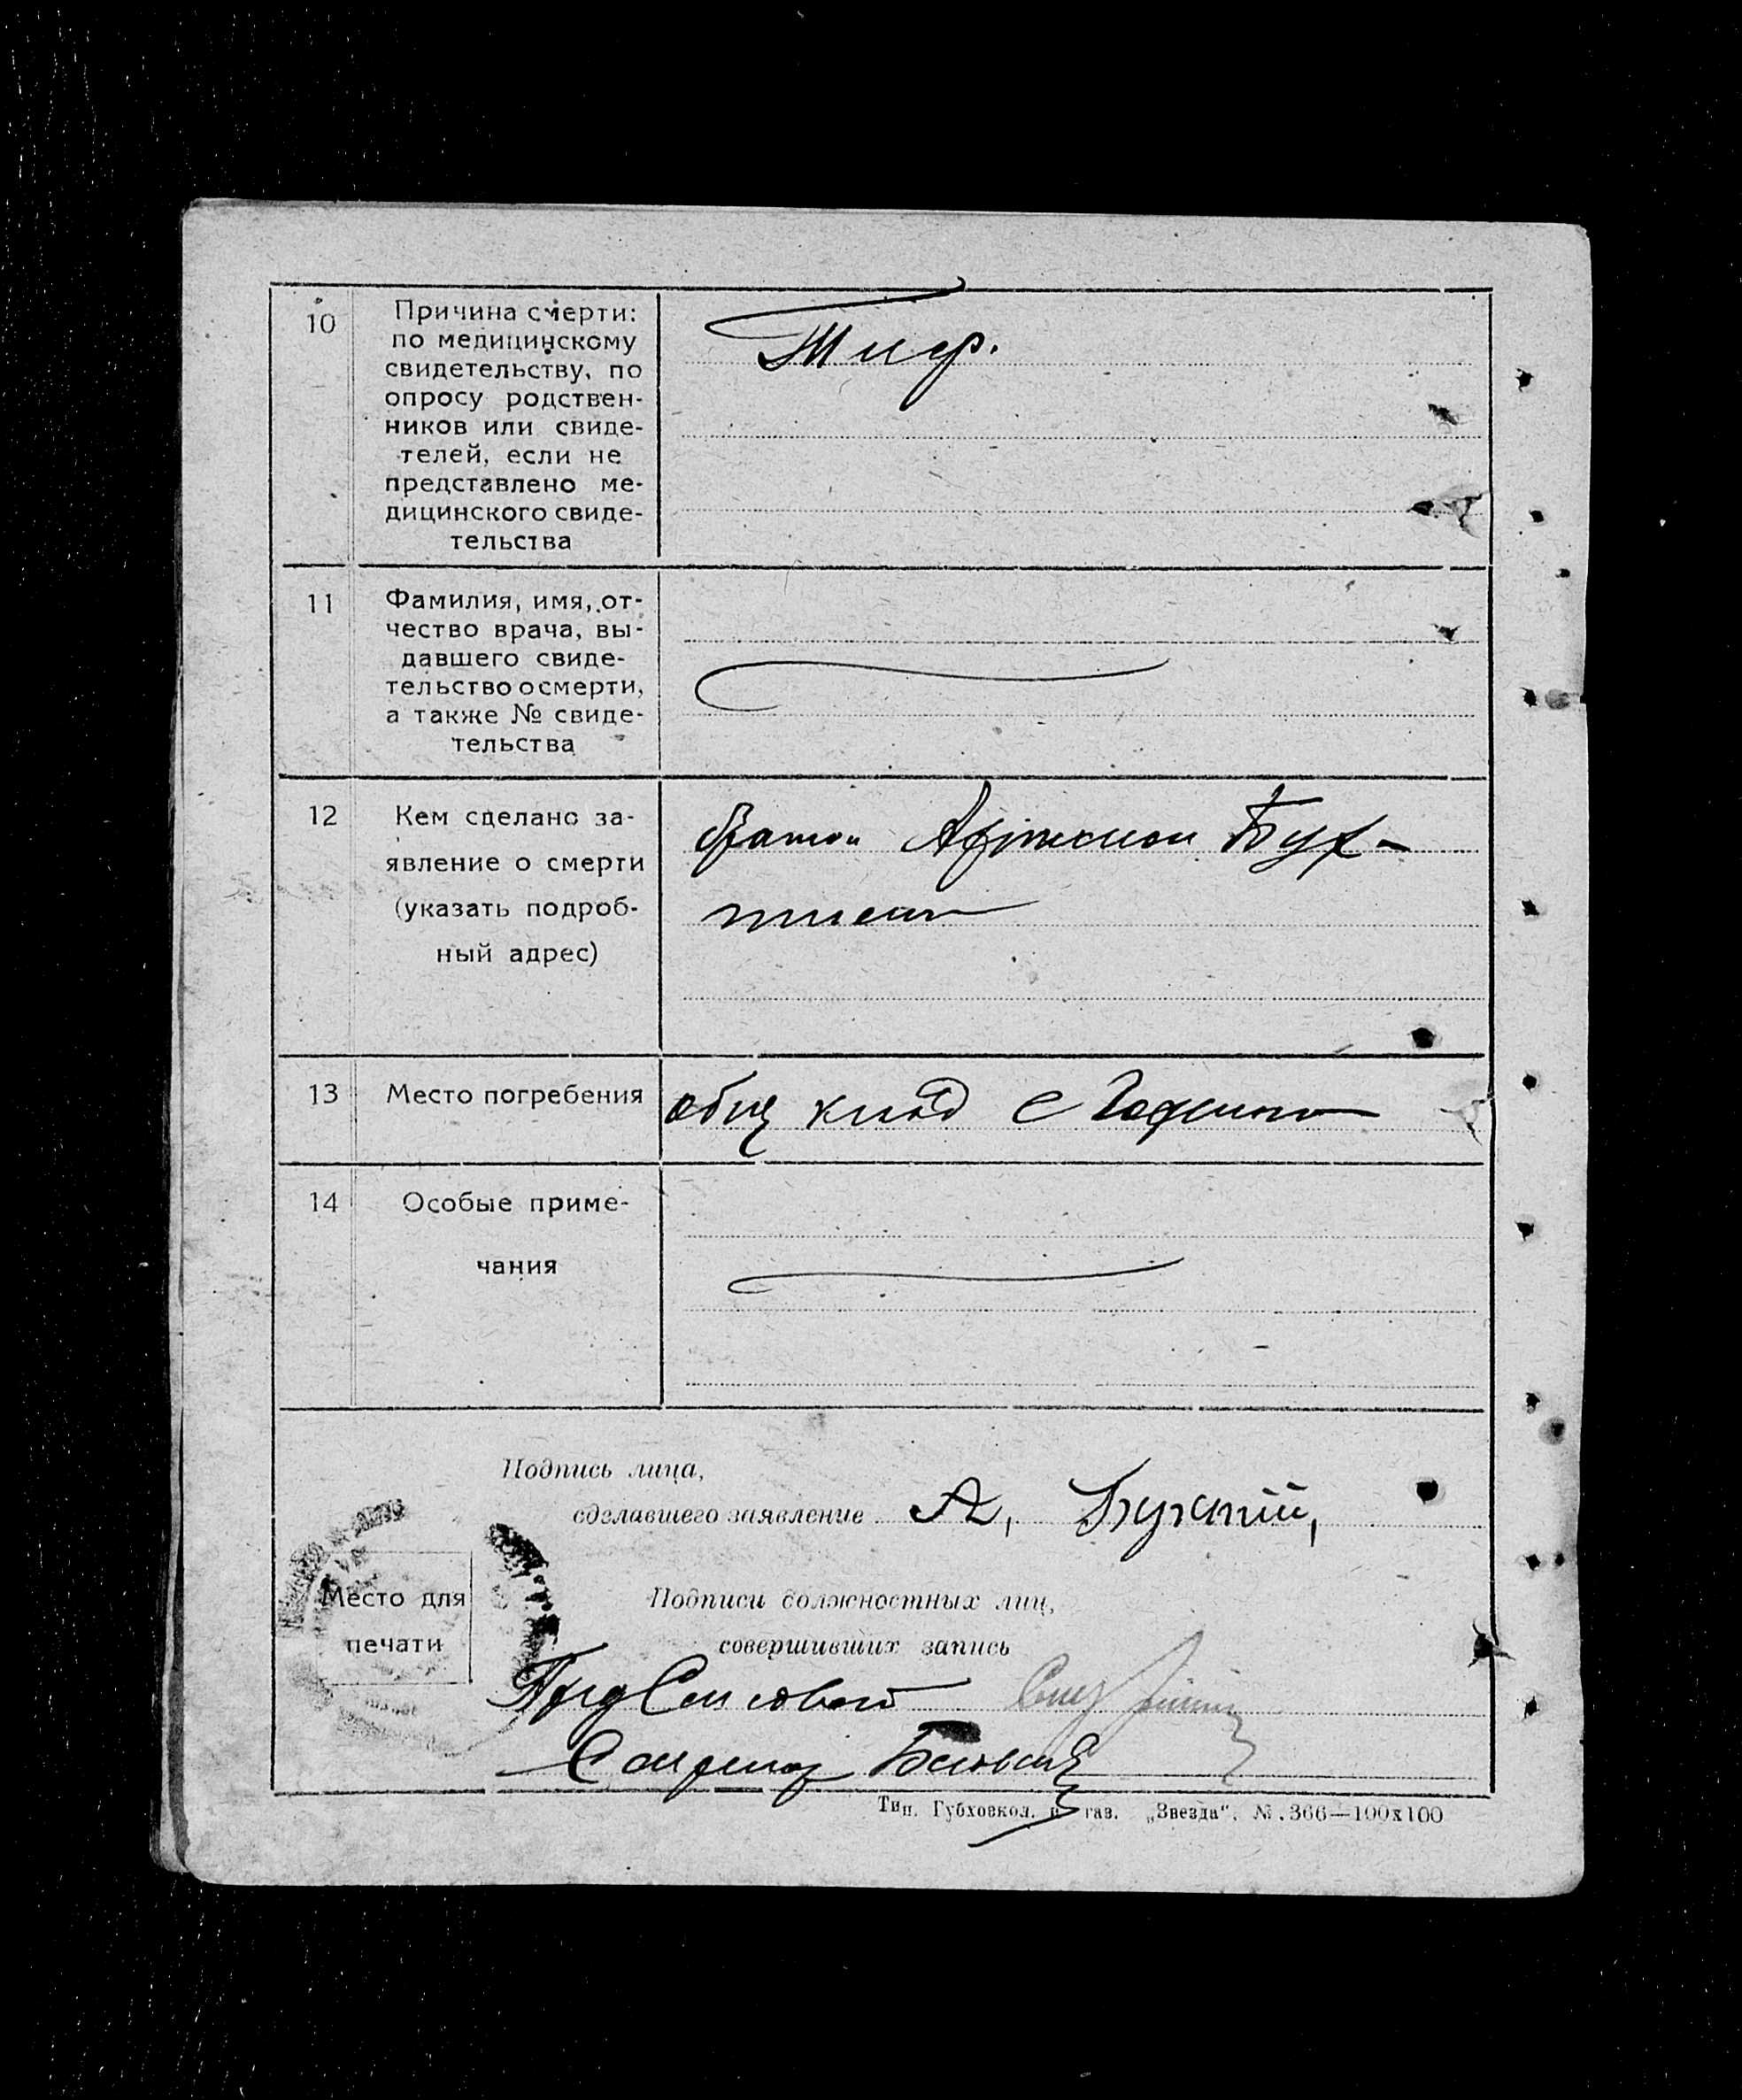 10
Причина смерти:
по медицинскому
свидетельству, по
опросу родствен-
ников или свиде-
телей, если не
представлено ме-
дицинского свиде-
тельства
Тиф.
11
Фамилия, имя, от-
чество врача, вы-
давшего свиде-
тельство о смерти,
а также № свиде-
тельства
12
Кем сделано за-
явление о смерти
(указать подроб-
ный адрес)
Бух-
13
Место погребения
общ кладб с
14
Особые приме-
чания
Подпись лица,
сделавшего заявление А,
Место для
печати
Подписи должностных лиц,
совершивших запись
Пред Сельсовета
Секретарь
Тип. Губховкол. и газ. „Звезда“. № 366—100х100